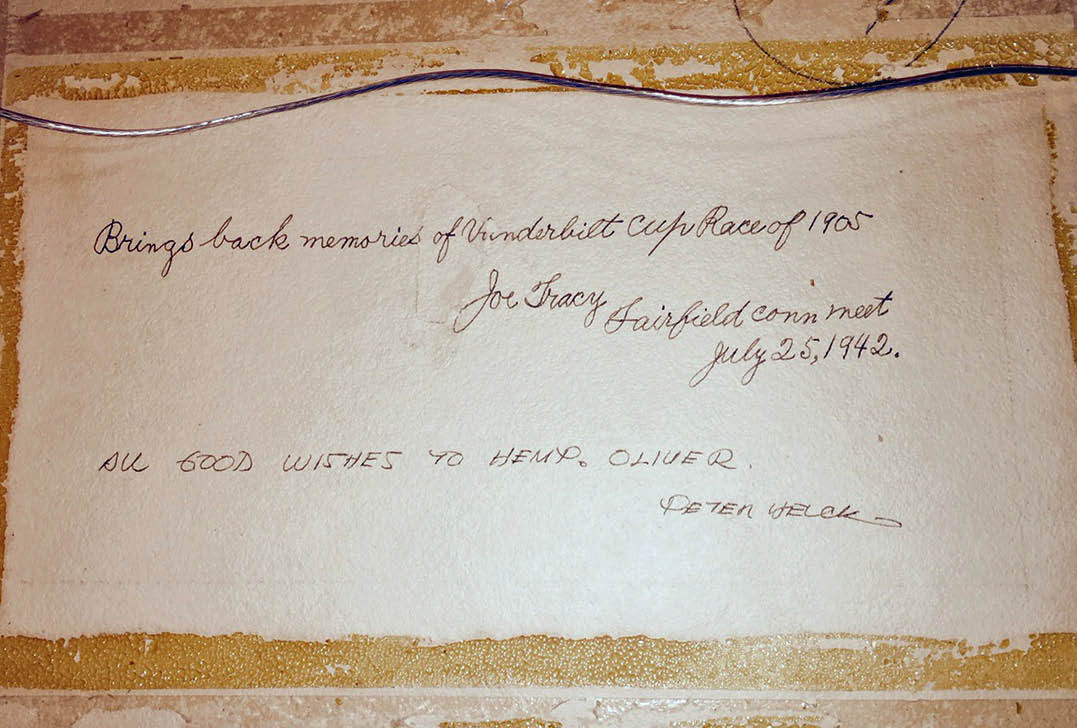 Brings back memories of Vanderbilt Cup Race of 1905
Joe Tracy
Fairfield conn meet
July 25, 1942.
ALL GOOD WISHES TO HEMP. OLIVER.
PETER HELCK